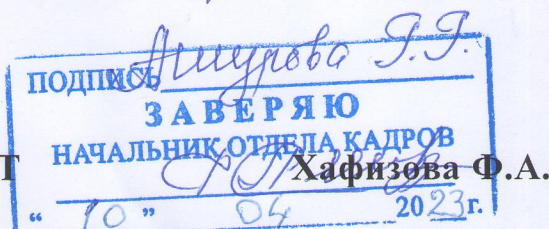 ПОДПИСЬ Ашурова Г.Г.
ЗАВЕРЯЮ
НАЧАЛЬНИК ОТДЕЛА КАДРОВ
Т Хафизова Ф.А.
“ 10 ” 04 2023 г.